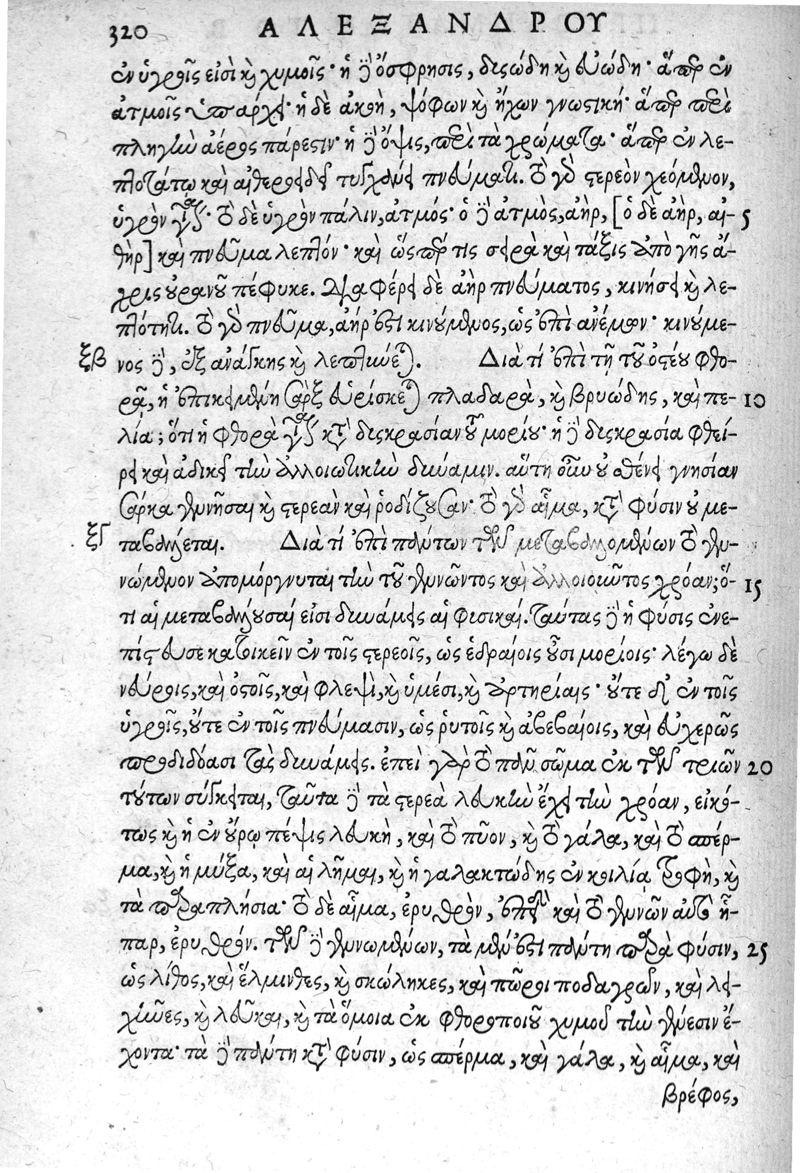 320 ΑΛΕΞΑΝΔΡΟΥ
ἐν ὑγροῖς εἰσὶ καὶ χυμοῖς· ἡ δὲ ὄσφρησις, δυσώδη καὶ εὐώδη· ἅπερ ἐν
ἀτμοῖς ὑπάρχει· ἡ δὲ ἀκοὴ, ψόφων καὶ ἤχων γνωστική· ἅπερ περὶ
πληγὴν ἀέρος πάρεστιν· ἡ δὲ ὄψις, περὶ τὰ χρώματα· ἅπερ ἐν λε-
πτοτάτῳ καὶ αἰθεροειδεῖ τυγχάνει πνεύματι. τὸ γὸ στερεὸν χεόμενον,
ὑγρὸν γίνεται· τὸ δὲ ὑγρὸν πάλιν, ἀτμός· ὁ δὲ ἀτμὸς, ἀὴρ, [ὁ δὲ ἀὴρ, αἰ- 5
θὴρ] καὶ πνεῦμα λεπτόν· καὶ ὥσπερ τις σειρὰ καὶ τάξις ἀπὸ γῆς ἄ-
χρις οὐρανοῦ πέφυκε. Διαφέρει δὲ ἀὴρ πνεύματος, κινήσει καὶ λε-
πτότητι. τὸ γὸ πνεῦμα, ἀήρ ἐστι κινούμενος, ὡς ἐπὶ ἀνέμων· κινούμε-
ξβ νος δὲ, ἐξ ἀνάγκης καὶ λεπτύνεται. Διὰ τί ἐπὶ τῇ τοῦ ὀστέου φθο-
ρᾷ, ἡ ἐπικειμένη σὰρξ εὑρίσκεται πλαδαρὰ, καὶ βρυώδης, καὶ πε- 10
λία; ὅτι ἡ φθορὰ γίνεται κατὰ δυσκρασίαν τοῦ μορίου· ἡ δὲ δυσκρασία φθεί-
ρει καὶ ἀδικεῖ τὴν ἀλλοιωτικὴν δύναμιν. αὕτη οὖν οὐ σθένει γνησίαν
σάρκα γεννῆσαι καὶ στερεὰν καὶ ῥοδίζουσαν· τὸ γὸ αἷμα, κατὰ φύσιν οὐ με-
ξγ ταβάλλεται. Διὰ τί ἐπὶ πάντων τῶν μεταβαλλομένων τὸ γεν-
νώμενον ἀπομόργνυται τὴν τοῦ γεννῶντος καὶ ἀλλοιοῦντος χρόαν; ὅ- 15
τι αἱ μεταβάλλουσαί εἰσι δυνάμεις αἱ φυσικαί. ταύτας δὲ ἡ φύσις ἐνε-
πίστευσε κατοικεῖν ἐν τοῖς στερεοῖς, ὡς ἑδραίοις οὖσι μορίοις· λέγω δὲ
νεύροις, καὶ ὀστοῖς, καὶ φλεψὶ, καὶ ὑμέσι, καὶ ἀρτηρίαις· οὔτε δὲ ἐν τοῖς
ὑγροῖς, οὔτε ἐν τοῖς πνεύμασιν, ὡς ῥυτοῖς καὶ ἀβεβαίοις, καὶ εὐχερῶς
προδιδοῦσι τὰς δυνάμεις. ἐπεὶ γὰρ τὸ πᾶν σῶμα ἐκ τῶν τριῶν 20
τούτων σύγκειται, ταῦτα δὲ τὰ στερεὰ λευκὴν ἔχει τὴν χρόαν, εἰκό-
τως καὶ ἡ ἐν οὔρῳ πέψις λευκὴ, καὶ τὸ πῦον, καὶ τὸ γάλα, καὶ τὸ σπέρ-
μα, καὶ ἡ μύξα, καὶ αἱ λῆμαι, καὶ ἡ γαλακτώδης ἐν κοιλίᾳ τροφὴ, καὶ
τὰ παραπλήσια· τὸ δὲ αἷμα, ἐρυθρὸν, ἐπεὶ καὶ τὸ γεννῶν αὐτὸ ἧ-
παρ, ἐρυθρόν. τῶν δὲ γεννωμένων, τὰ μέν ἐστι πάντη παρὰ φύσιν, 25
ὡς λίθος, καὶ ἕλμινθες, καὶ σκώληκες, καὶ πῶροι ποδαγρῶν, καὶ λει-
χῆνες, καὶ λεῦκαι, καὶ τὰ ὅμοια ἐκ φθοροποιοῦ χυμοῦ τὴν γένεσιν ἔ-
χοντα· τὰ δὲ πάντη κατὰ φύσιν, ὡς σπέρμα, καὶ γάλα, καὶ αἷμα, καὶ
βρέφος,